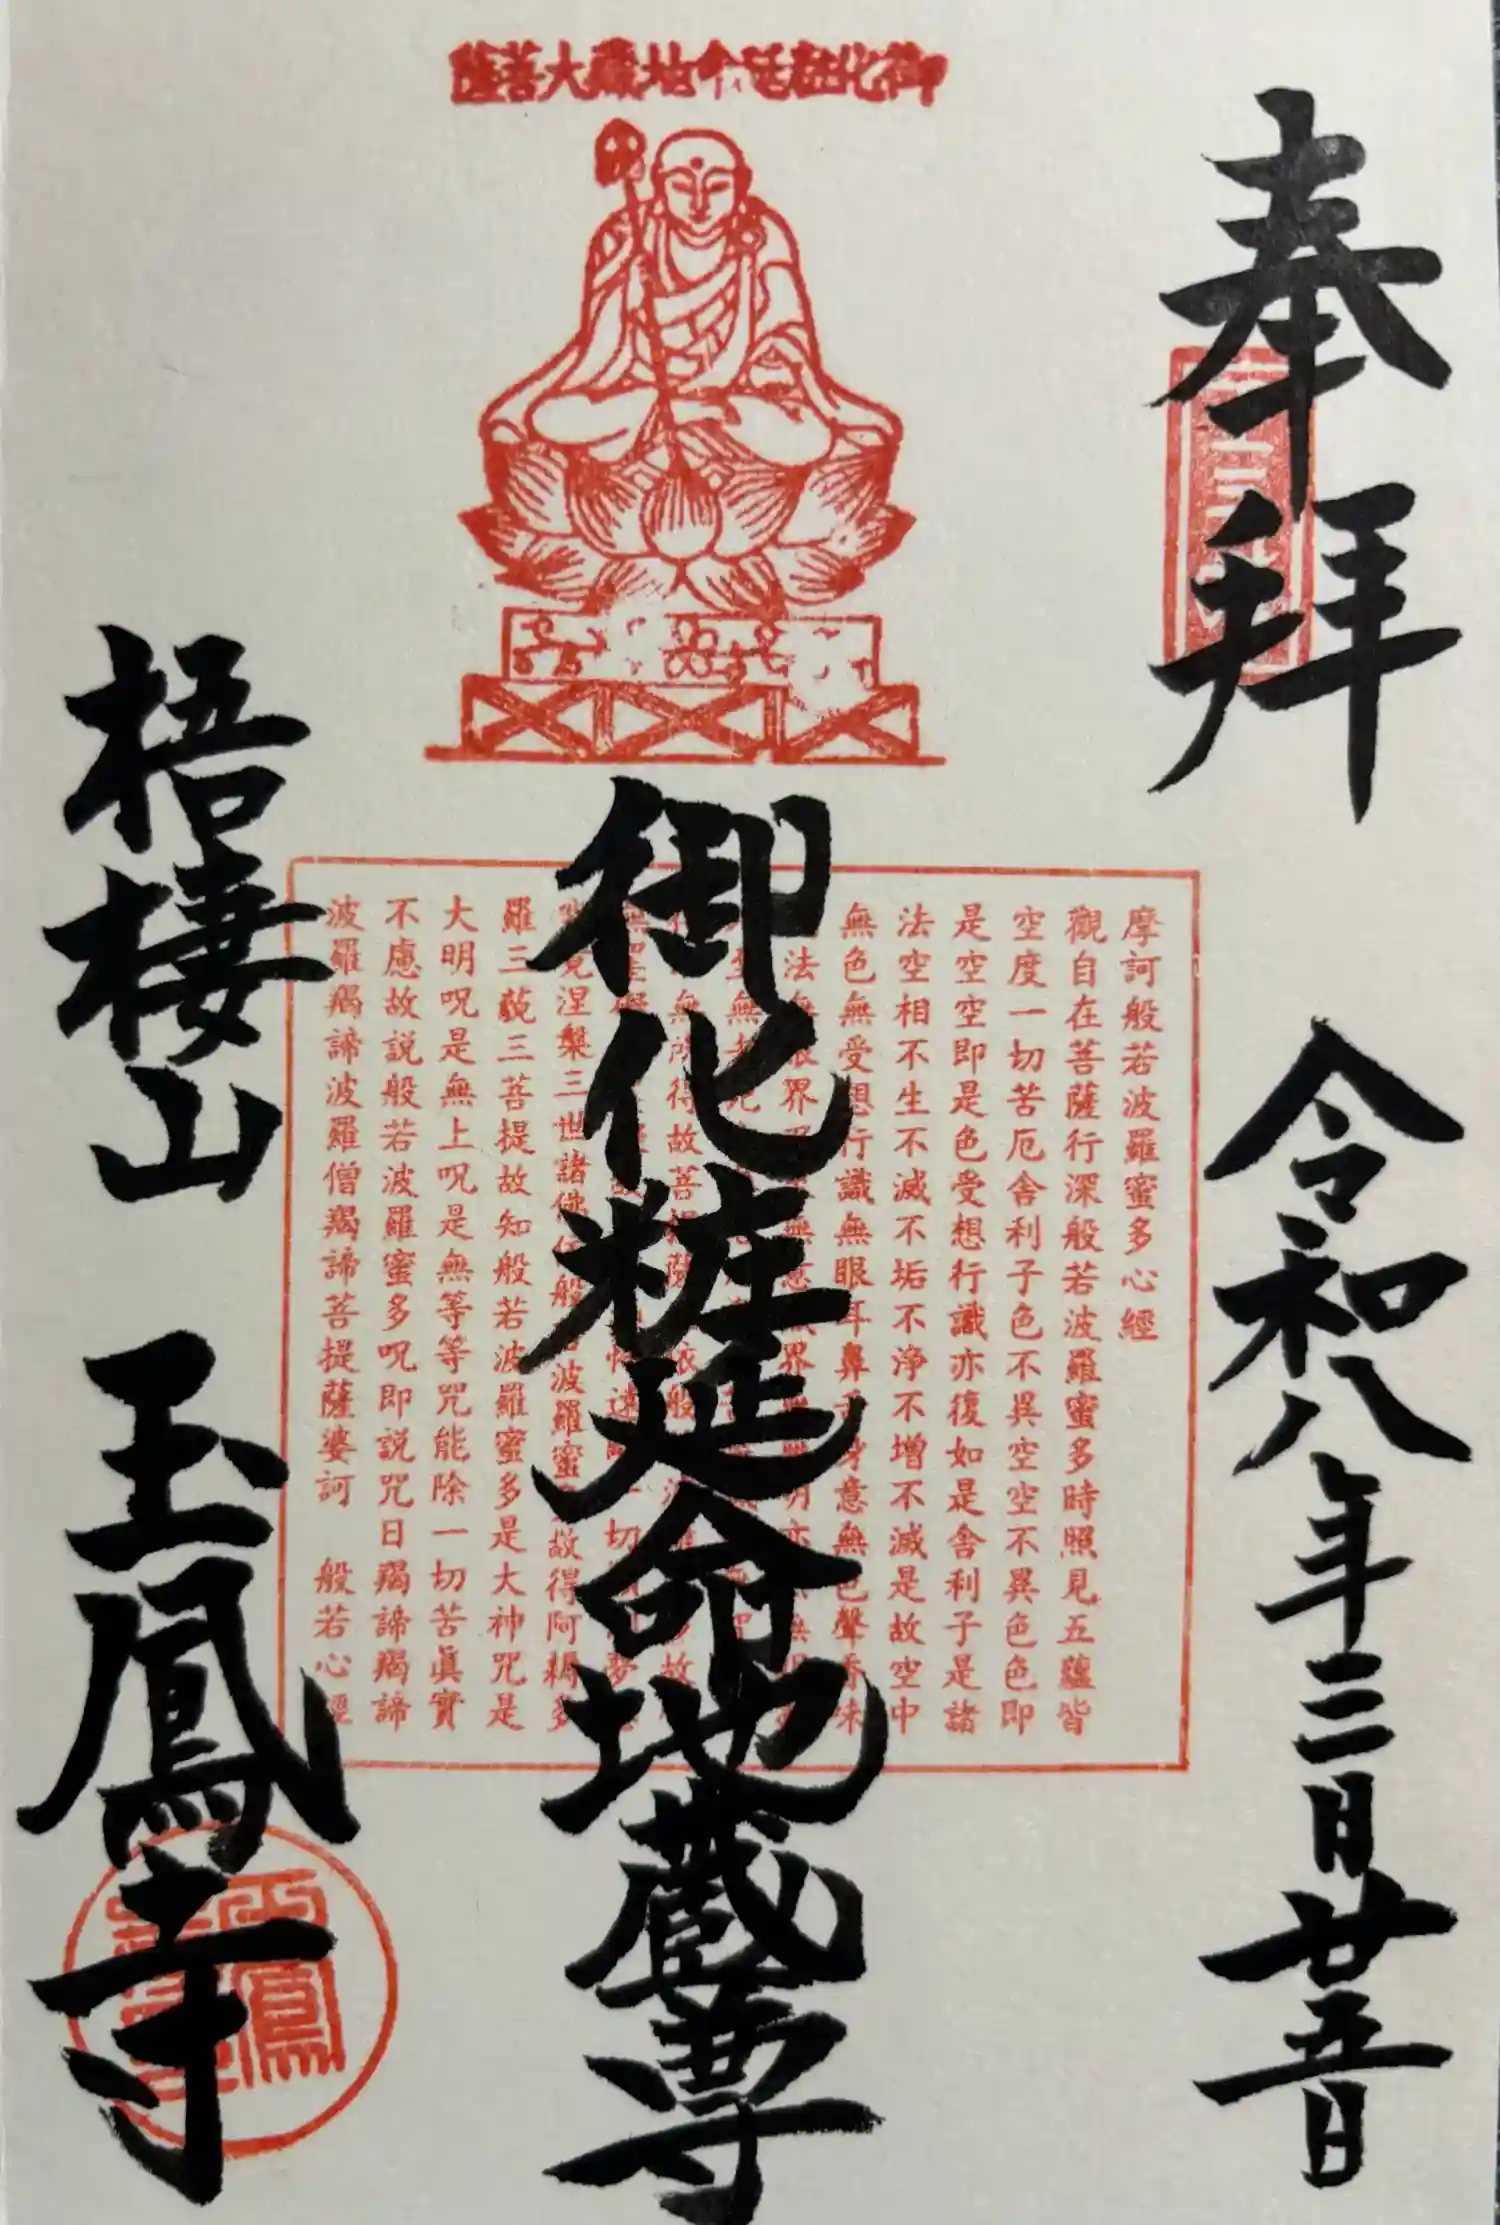 奉拝
令和八年三月廿五日
御化粧延命地藏大菩薩
御化粧延命地蔵尊
摩訶般若波羅蜜多心經
觀自在菩薩行深般若波羅蜜多時照見五蘊皆
空度一切苦厄舍利子色不異空空不異色色即
是空空即是色受想行識亦復如是舍利子是諸
法空相不生不滅不垢不浄不增不滅是故空中
無色無受想行識無眼耳鼻舌身意無色聲香味
法無眼界
無所得故菩提薩
涅槃三世諸佛 般 波羅蜜 故得阿耨多
羅三藐三菩提故知般若波羅蜜多是大神咒是
大明呪是無上呪是無等等咒能除一切苦眞實
不慮故説般若波羅蜜多呪即説咒日羯諦羯諦
波羅羯諦波羅僧羯諦菩提薩婆訶 般若心經
梧棲山 玉鳳寺